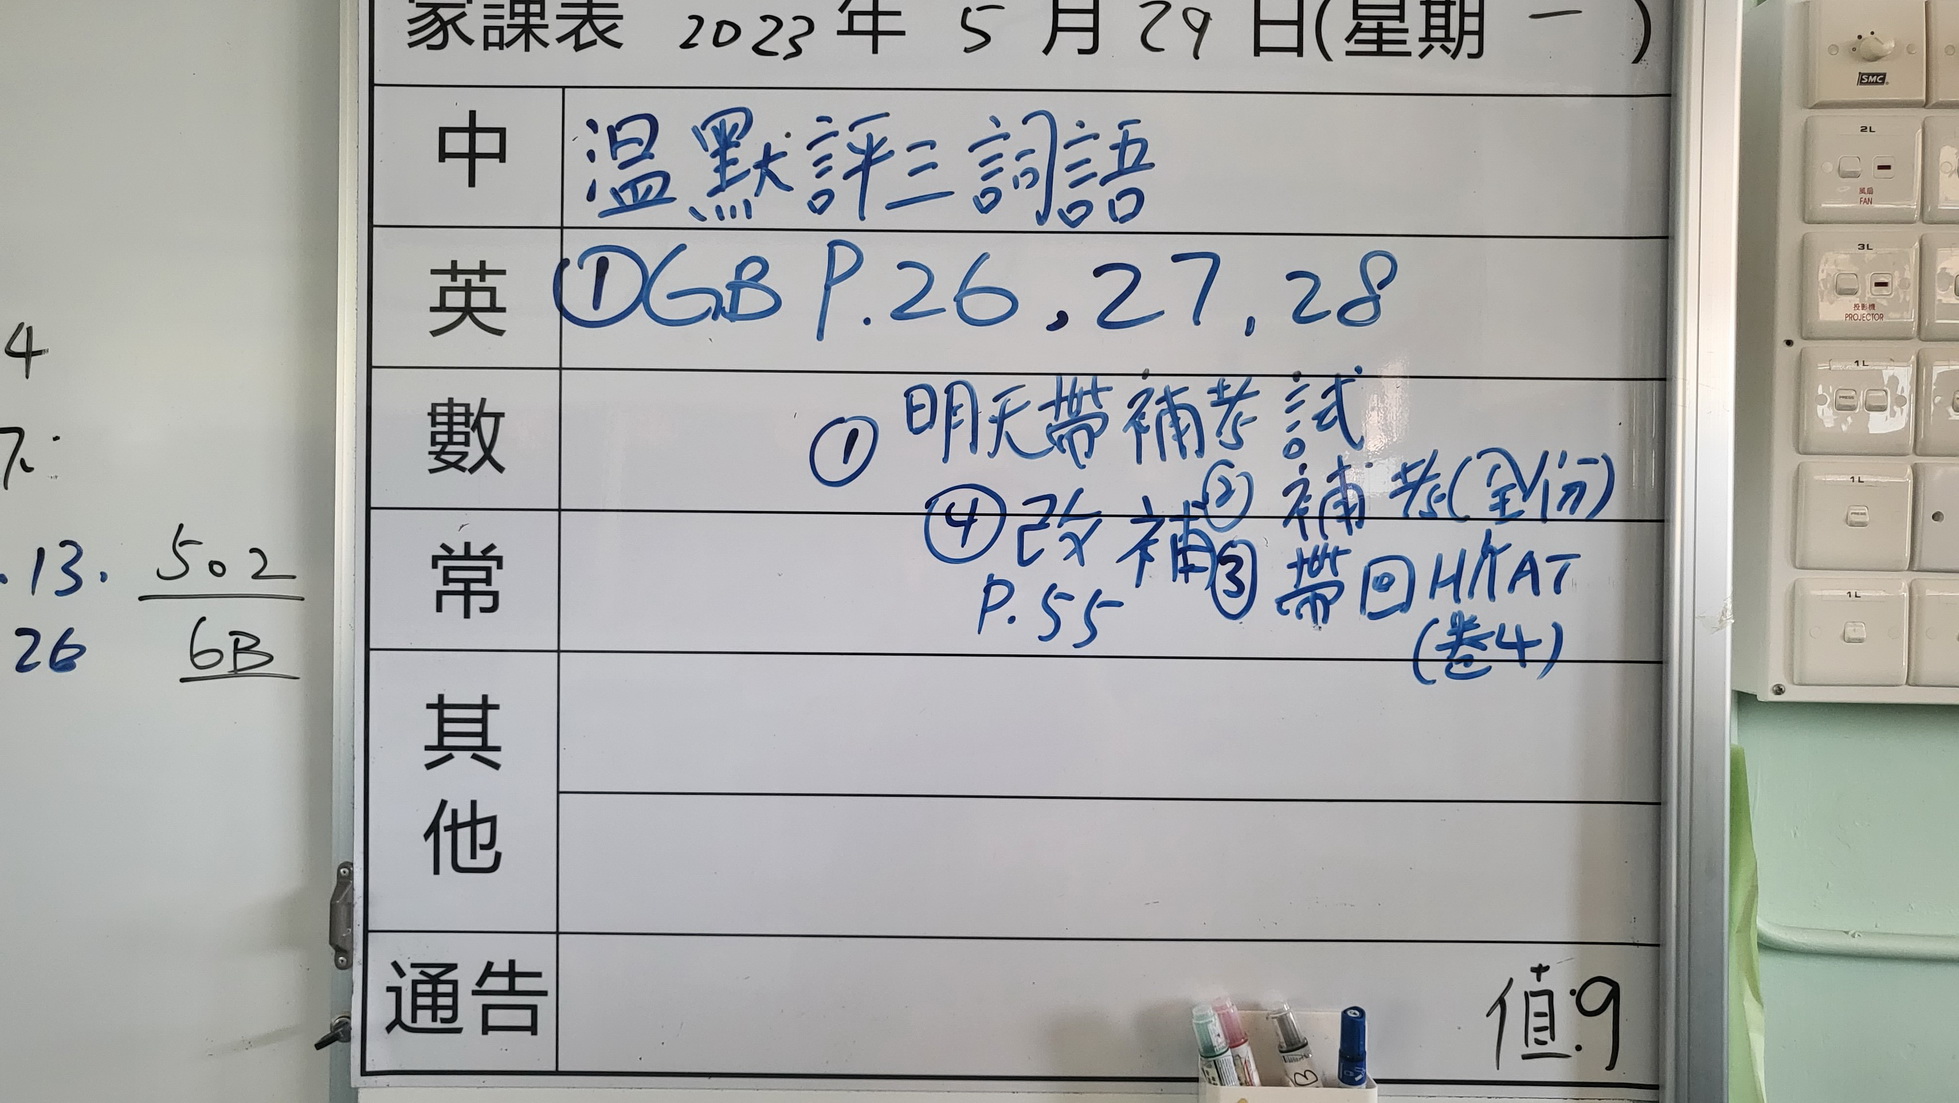 家課表 2023 年 5 月 29 日(星期 一 )
中 温默評三詞語
英 ①GB P.26,27,28
數 ① 明天帶補考試
② 補考(全份)
常 ④改補 ③帶回HKAT
P.55 (卷4)
其他
通告
值:9
4
.13. 502
26 6B
SMC
2L
風扇
FAN
3L
投影機
PROJECTOR
1L
1L
1L